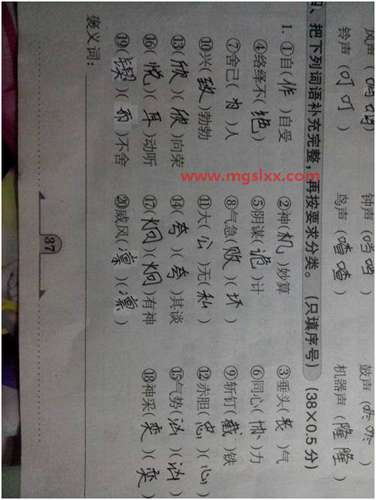 风声 钟声 鼓声
铃声(叮叮) 鸟声(喳喳) 机器声(隆隆)
、把下列词语补充完整,再按要求分类。(只填序号)(38×0.5分)
1. ①自(作)自受 ②神(机)妙算 ③垂头(丧)气
④络绎不(绝) ⑤阴谋(诡)计 ⑥同心(协)力
⑦舍己(为)人 ⑧气急(败)(坏) ⑨斩钉(截)铁
⑩兴(致)勃勃 ⑪大(公)无(私) ⑫赤胆(忠)(心)
⑬(欣)(欣)向荣 ⑭(夸)(夸)其谈 ⑮气势(汹)(汹)
⑯(悦)(耳)动听 ⑰(炯)(炯)有神 ⑱神采(奕)(奕)
⑲(锲)(而)不舍 ⑳威风(凛)(凛)
褒义词:
37
www.mgslxx.com